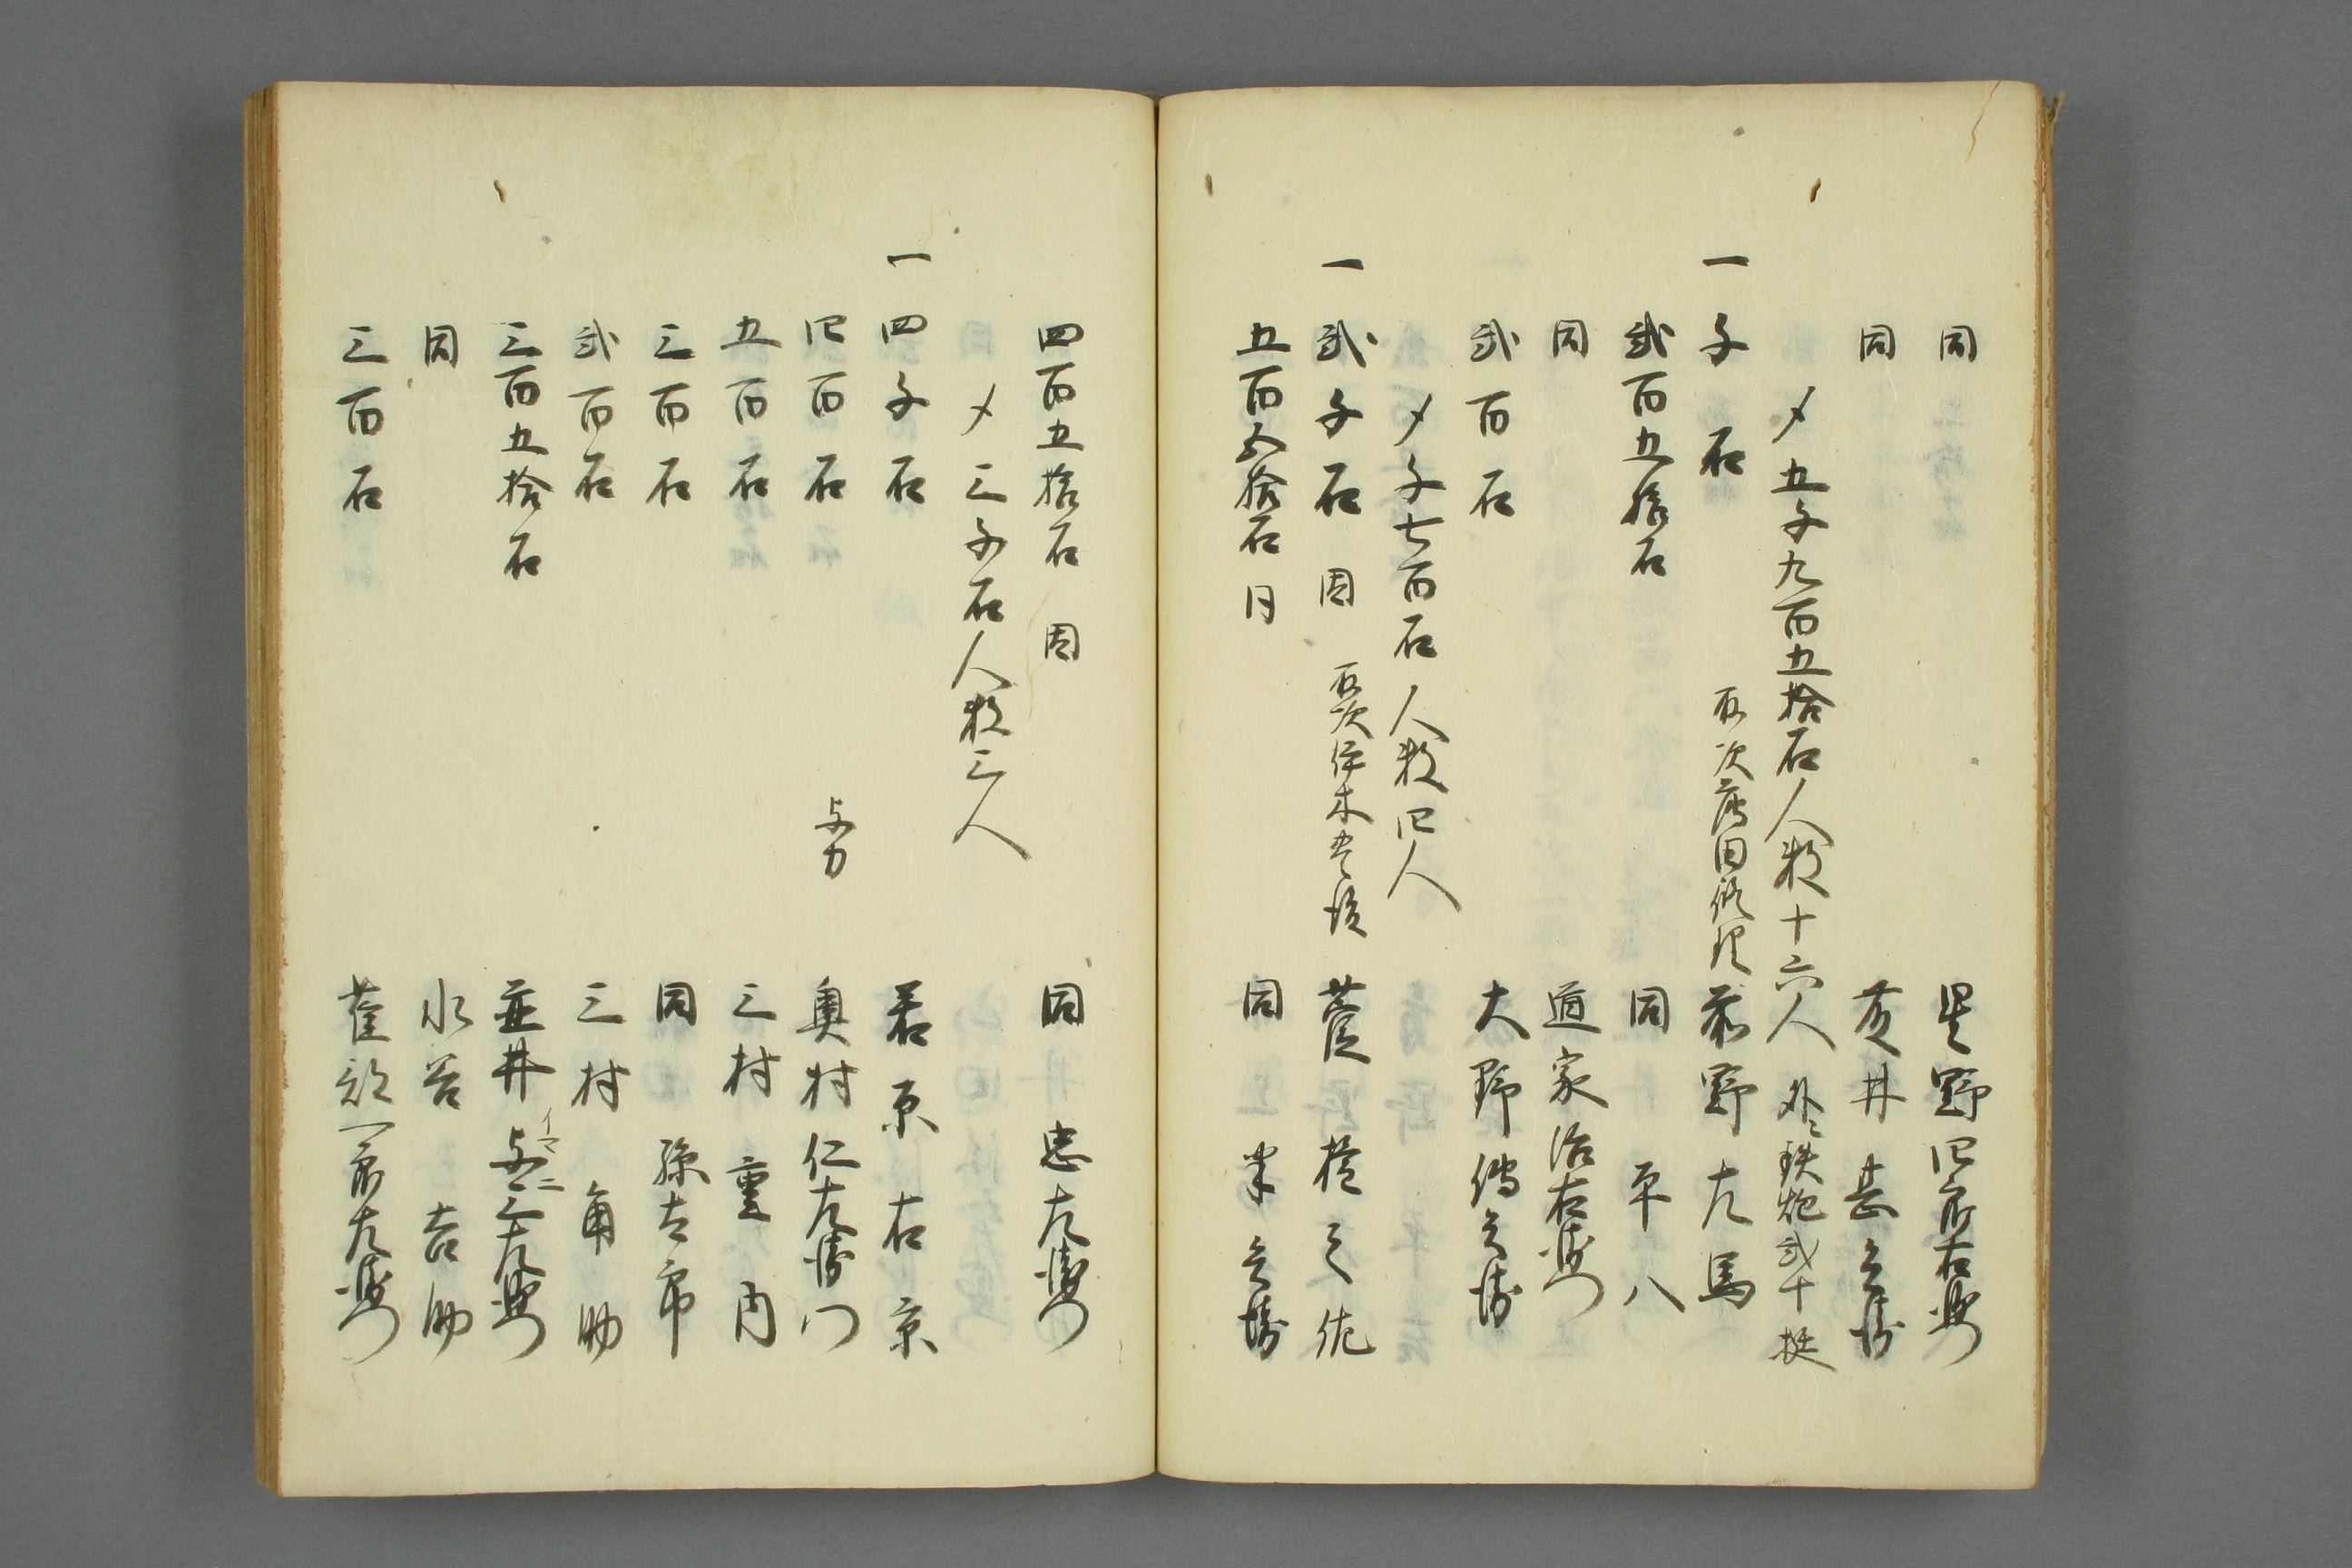 同 星野四郎右衛門
同 荒井甚兵衛
〆五千九百五拾石人数十六人 外ニ鉄炮弐十挺
一 千石 取次 前野左馬
弐百五拾石 同 平八
同 道家治右衛門
弐百石 大野伝兵衛
〆千七百石 人数四人
一 弐千石 因 取次伊木 菅 権之佐
五百五拾石 同 同 半兵衛
四百五拾石 因 同 忠左衛門
〆三千石人数三人
一 四千石 若原右京
四百石 与力 奥村仁左衛門
五百石 三村重内
三百石 同 孫太郎
弐百石 三村角助
三百五拾石 並井与三左衛門
同 水谷吉助
三百石 一郎左衛門